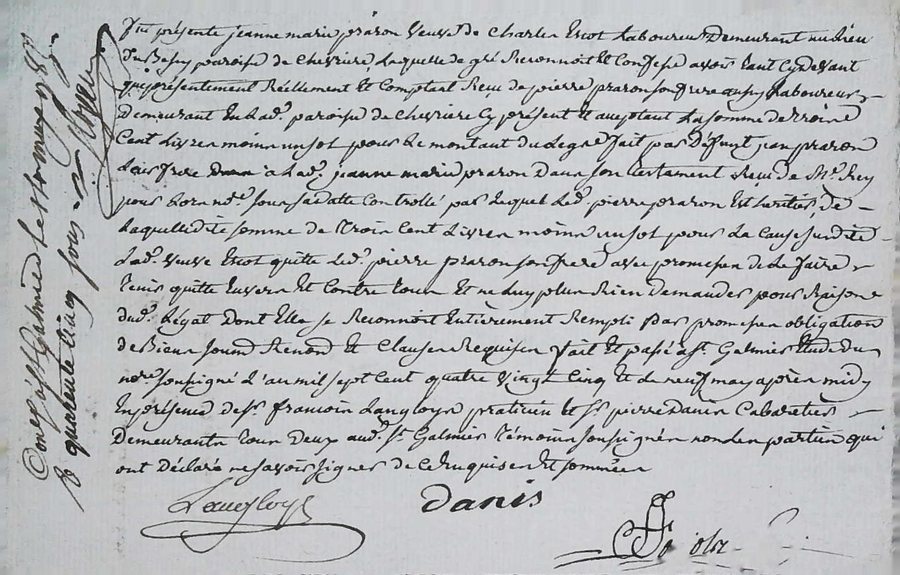 fut présente jeanne marie prazon veuve de Charles Escot Laboureur Demeurant au Lieu
du paroisse de chevriere Laquelle de gré Reconnoit Et Confesse avoir tant Cydevant
que présentement Réellement Et Comptant Reçu de pierre prazon son frere aussy Laboureur
demeurant En Lad. paroisse de chevriere Cy présent Et acceptant La somme de trois
Cent Livres moins un sol pour Le montant du Legué fait par Défunt jean prazon
Leur frere a Lad. jeanne marie prazon Dans son testament Reçu de Me. Rey
pour Lors nore. sous sa datte Controllé par Lequel Led. pierre prazon Est heritier de
Laquelle dite somme de Trois Cent Livres moins un sol pour La Cause susdite
Lad. veuve Escot quitte Led. pierre prazon son frere avec promesse de Le faire
tenir quitte Envers Et Contre tous Et ne Luy plus Rien Demander pour Raison
dud. Légat Dont Elle se Reconnoit Entièrement Rempli par promesses obligation
de Biens Renond Et Clauses Requises fait Et passé a St. Galmier Etude du
nore. soussigné L'an mil sept Cent quatre vingt Cinq Et de neuf may après midy
En présence de Sr. francois Langloys praticien Et Sr. pierre Danis Cabaretier
Demeurants tous Deux aud. St. Galmier témoins soussignés non Les parties qui
ont Déclaré ne savoir signer de Ce Enquises Et sommées
Langloys
Danis
Controlé à St Galmier Le
R quarente Cinq sous